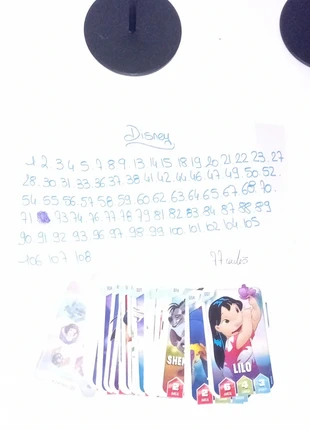 Disney
1 2 3 4 5 7 8 9 13 14 15 18 19 20 21 22 23 27
28 30 31 33 36 37 38 41 42 44 46 47 49 50 52
54 55 56 57 58 59 60 62 63 64 65 67 68 70
71 73 74 76 77 78 79 81 82 83 84 87 88 89
90 91 92 93 96 97 98 99 100 101 102 104 105
106 107 108
77
SHE
LILO
2 2 6 4 3